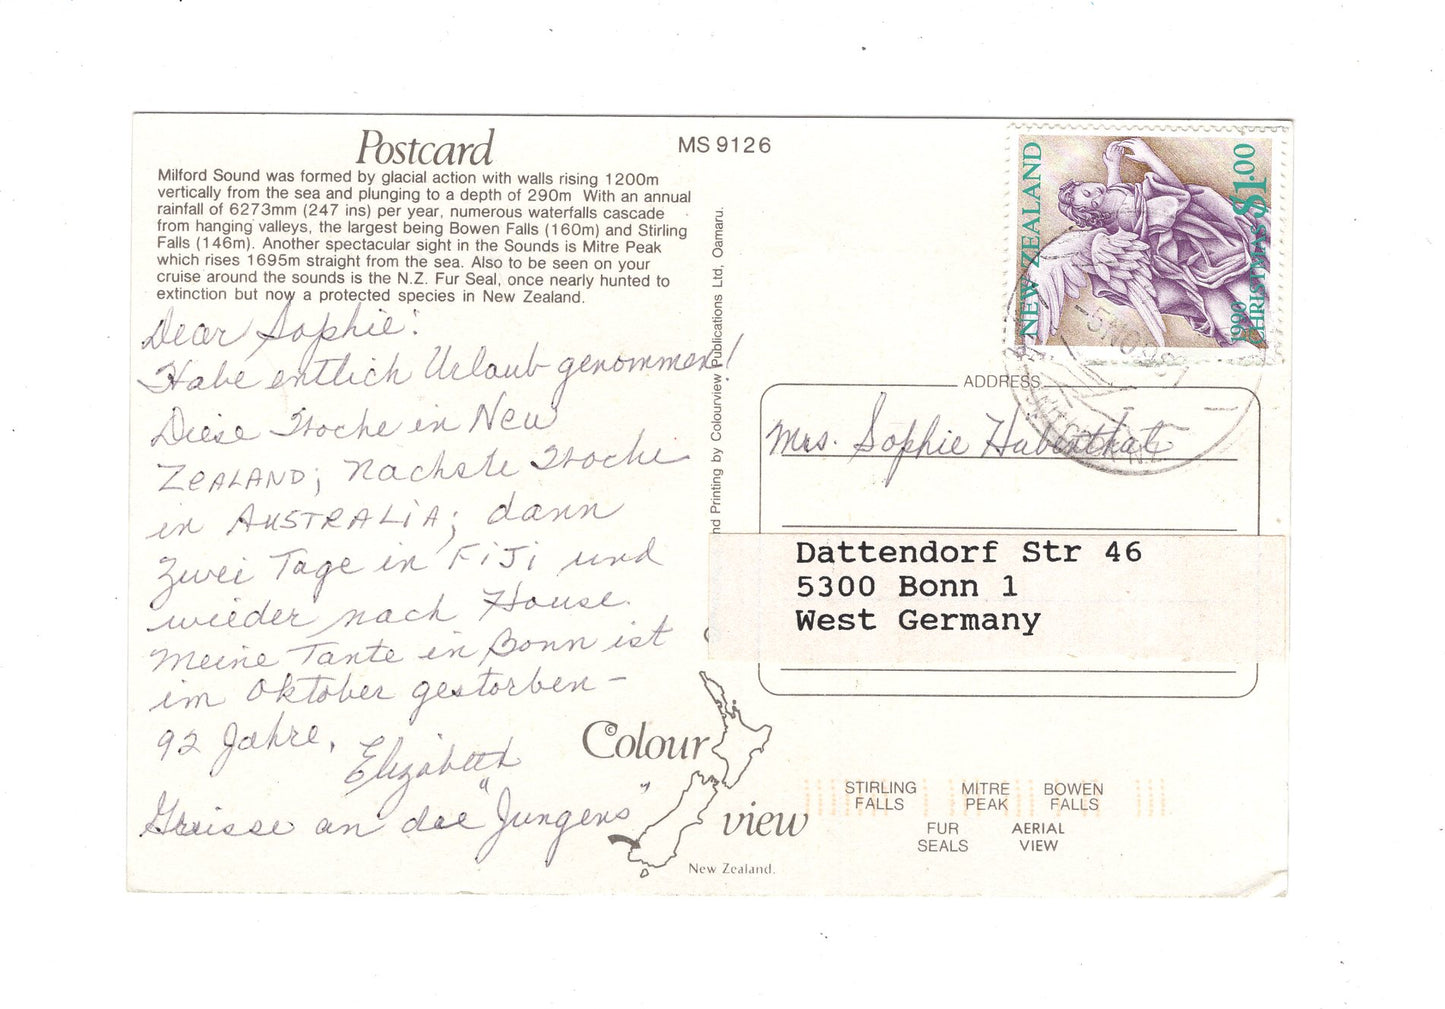 Postcard
MS 9126
Milford Sound was formed by glacial action with walls rising 1200m
vertically from the sea and plunging to a depth of 290m With an annual
rainfall of 6273mm (247 ins) per year, numerous waterfalls cascade
from hanging valleys, the largest being Bowen Falls (160m) and Stirling
Falls (146m). Another spectacular sight in the Sounds is Mitre Peak
which rises 1695m straight from the sea. Also to be seen on your
cruise around the sounds is the N.Z. Fur Seal, once nearly hunted to
extinction but now a protected species in New Zealand.
Dear Sophie:
Habe entlich Urlaub genommen!
Diese Woche in New
ZEALAND; Nachste Woche
in AUSTRALIA; dann
zwei Tage in FIJI und
wieder nach House.
Meine Tante in Bonn ist
im Oktober gestorben –
92 Jahre.
Elizabeth
Grüsse an die "Jungens"
nd Printing by Colourview Publications Ltd, Oamaru.
NEW ZEALAND
1990
CHRISTMAS $1.00
5 NO 90
ADDRESS
Mrs. Sophie Hubenthal
Dattendorf Str 46
5300 Bonn 1
West Germany
© Colour
view
New Zealand.
STIRLING
FALLS
MITRE
PEAK
BOWEN
FALLS
FUR
SEALS
AERIAL
VIEW